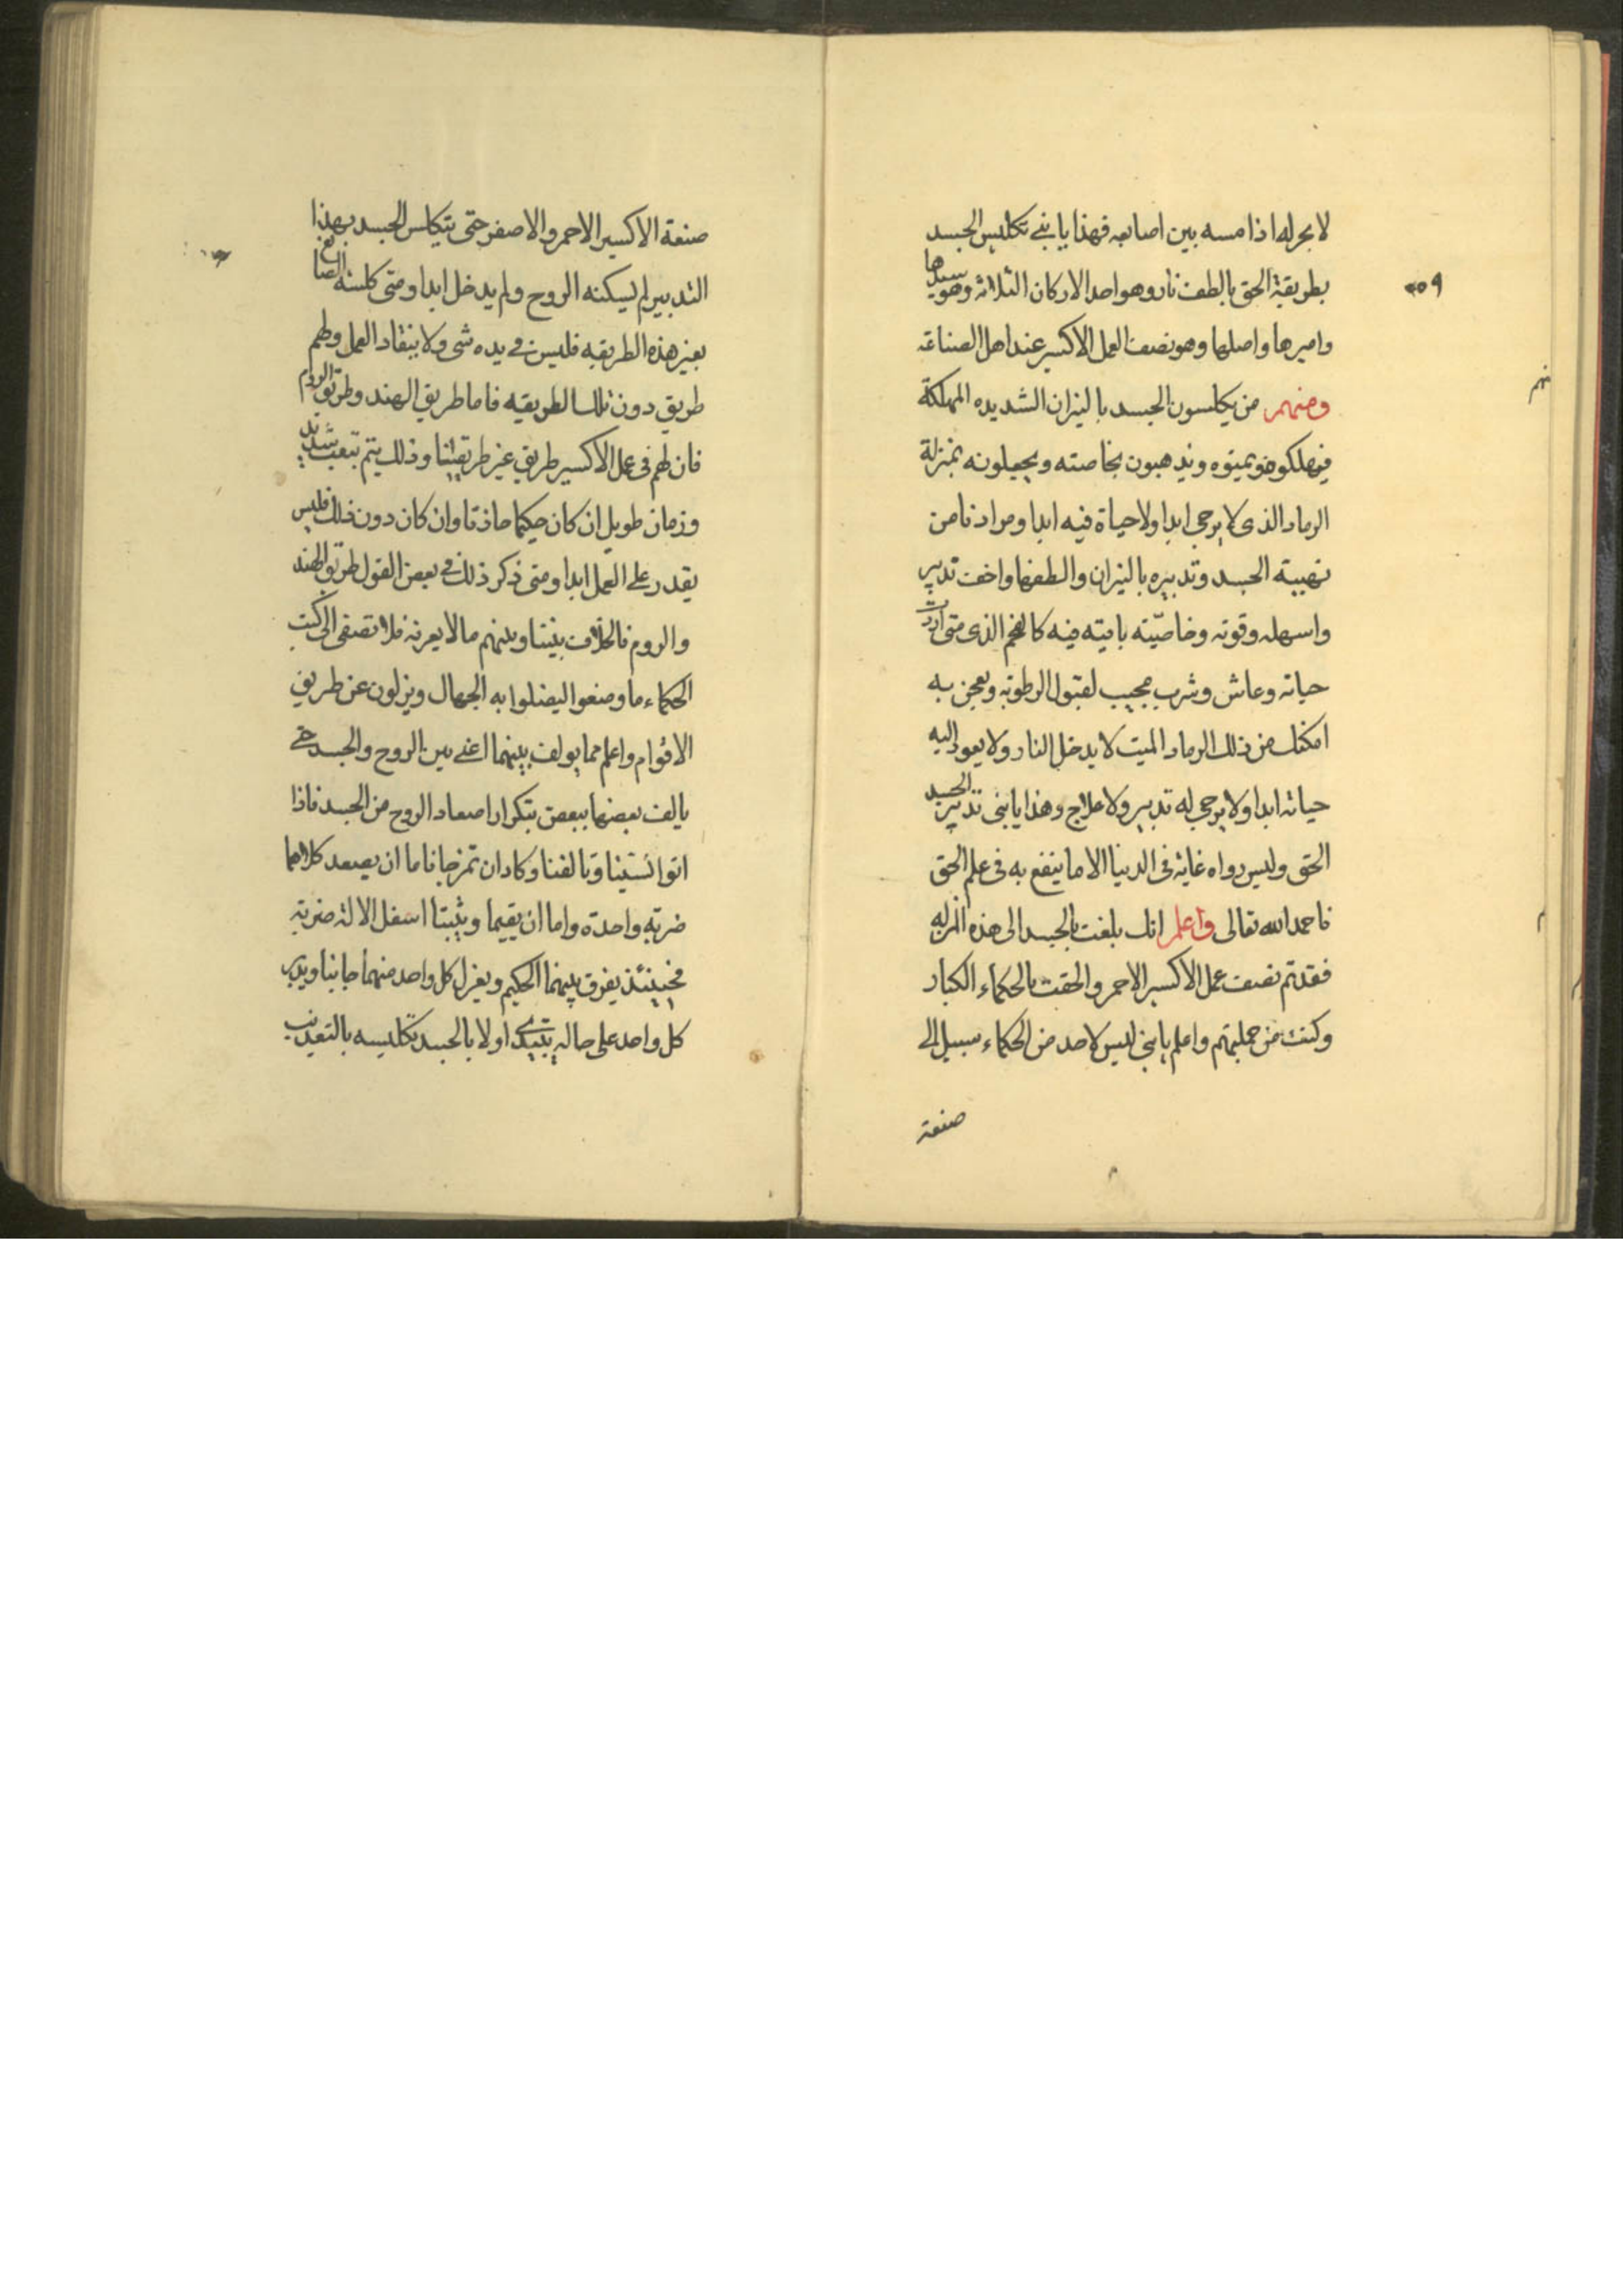 لا بجرله اذا مسه بين اصابعه فهذا يا بني تكليس الجسد
بطريقة الحق بالطف نار وهو احد الاركان الثلاثة وهو سيدها
واميرها واصلها وهو نصف العمل الاكسير عند اهل الصناعة
ومنهم من يكلسون الجسد بالنيران الشديده المهلكة
فيهلكوه ويميتوه ويذهبون بخاصته ويجعلونه بمنزلة
الرماد الذى لا يرجى ابدا ولا حياة فيه ابدا ومرادنا من
تهبية الجسد وتدبيره بالنيران والطفها واخف تدبير
واسهله وقوته وخاصّيته باقيته فيه كالفحم الذى متى اردت
حياته وعاش وشرب مجيب لقبول الرطوبة ويعجن به
امكنك من ذلك الرماد الميت لا يدخل النار ولا يعود اليه
حياته ابدا ولا يرجى له تدبير ولا علاج وهذا يا بنى تدبير الجسد
الحق وليس رواه غاية فى الدينا الا ما ينفع به فى علم الحق
فاحمد الله تعالى واعلم انك بلغت بالجسد الى هذه المنزله
فقد تم نصف عمل الاكسير الاحمر والحقت بالحكماء الكبار
وكنت من جملتهم واعلم يا بنى ليس لاحد من الحكماء سبيل الى
صنعة
صنعة الاكسير الاحمر والاصفر حتى يتكلس الجسد بهذا
التدبير لم يسكنه الروح ولم يدخل ابدا ومتى كلسه الصانع
بغير هذه الطريقه فليس فى يده شى ولا ينقاد العمل ولهم
طريق دون تلك الطريقه فاما طريق الهند وطريق الروم
فان لهم فى عمل الاكسير طريق غير طريقتنا وذلك يتم بتعب شديد
وزمان طويل ان كان حكيما حاذقا وان كان دون ذلك فليس
يقدر على العمل ابدا ومتى ذكر ذلك فى بعض القول طريق الهند
والروم فالخلاف بيننا وبينهم ما لا يعرفه فلا تصغى الى كتب
الحكماء ما وضعوا ليضلوا به الجهال ويزلون عن طريق
الاقوام واعلم مما يولف بينهما اعنى بين الروح والجسد حتى
يالف بعضها ببعض بتكرار اصعاد الروح من الجسد فاذا
اتوانستينا وتالفنا وكادان تمزجا فاما ان يصعد كلاهما
ضربة واحدة واما ان يقيما ويثبتا اسفل الالة ضربة
فحينئذ يفرق بينهما الحكيم ويعزل كل واحد منهما جانبا ويدبر
كل واحد على حاله يبتدى اولا بالجسد تكليسه بالتعذيب